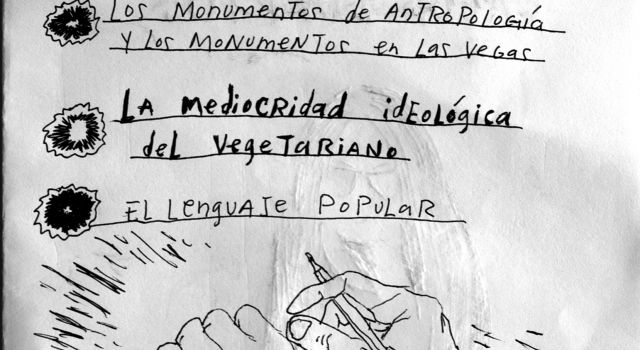 Los Monumentos de AnTROPología
y Los MoNumeNTos en Las Vegas
LA mediocRidad idEológica
deL VegeTARiANo
EL LenguAJe PoPuLaR